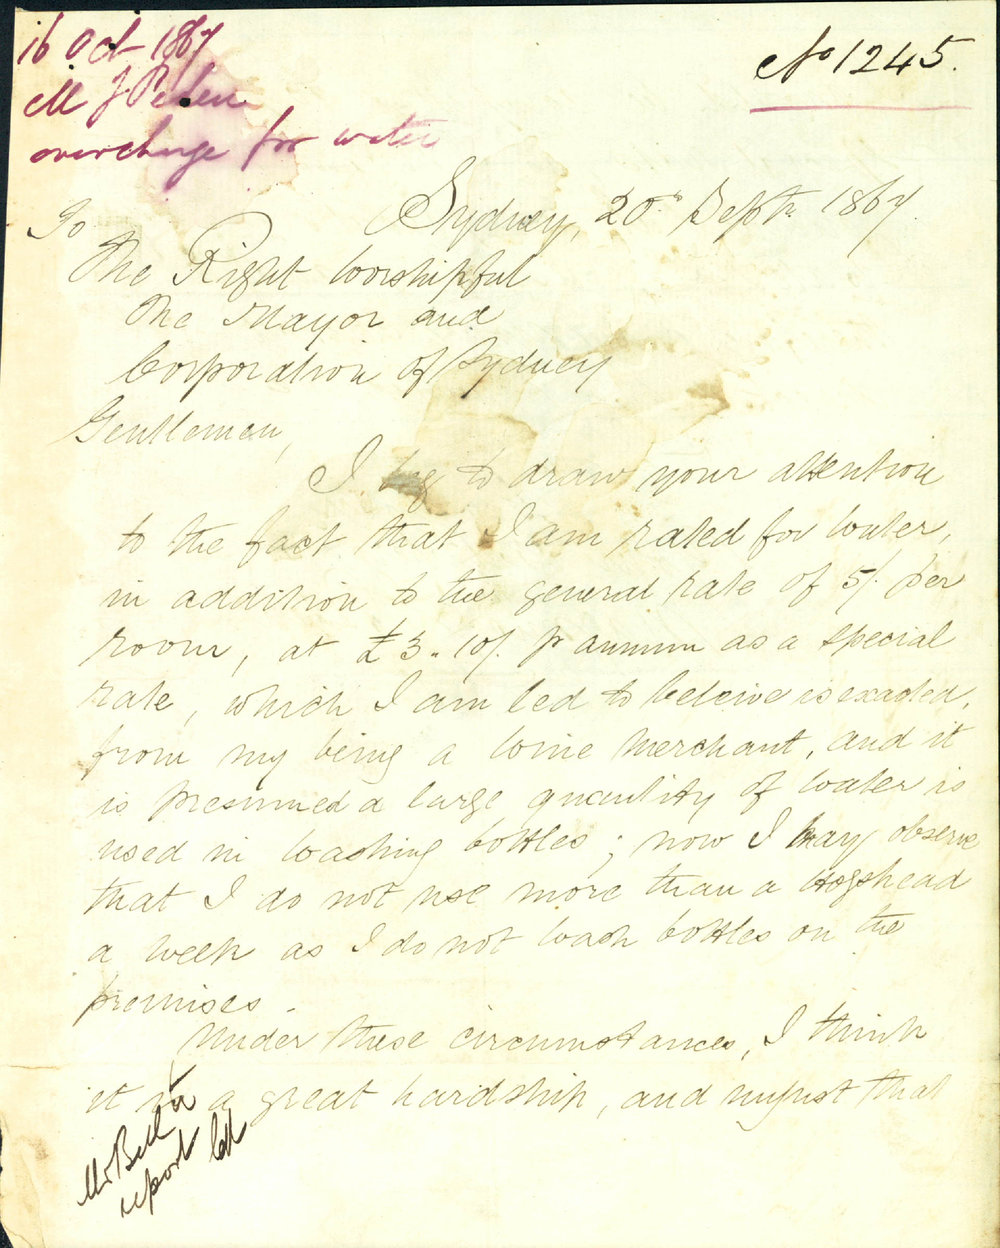 16 Oct 1867
M J Peden
overcharge for water
No 1245.
Sydney, 20th Septr. 1867.
To
The Right Worshipful
The Mayor and
Corporation of Sydney
Gentlemen,
I beg to draw your attention
to the fact that I am rated for water,
in addition to the general rate of 5/. per
room, at £3.10/. p annum as a special
rate, which I am led to beleive is exacted,
from my being a wine merchant, and it
is presumed a large quantity of water is
used in washing bottles; now I may observe
that I do not use more than a Hogshead
a week as I do not wash bottles on the
premises.
Under these circumstances, I think
it is a great hardship, and unjust that
Mr Bell to
report